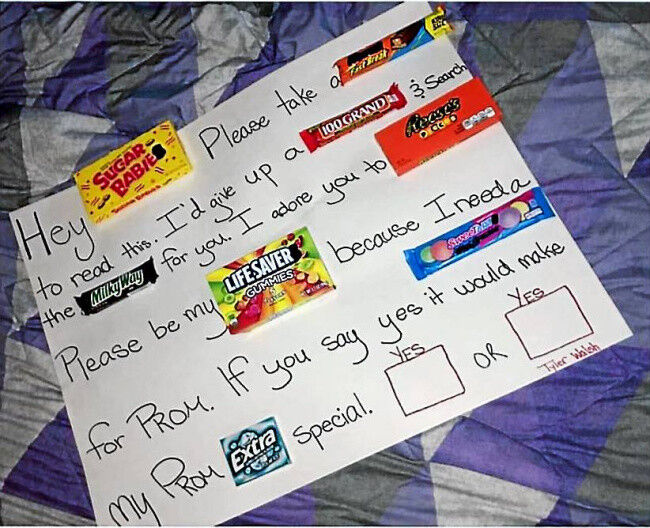 Hey SUGAR BABIES Please take a Fast Break
to read this. I'd give up a 100 GRAND & Search
the Milky Way for you. I adore you to Reese's PIECES
Please be my LIFE SAVERS GUMMIES because I need a SweeTARTS
for PROM. If you say yes it would make
My PROM Extra special. YES OR YES
Tyler Walsh